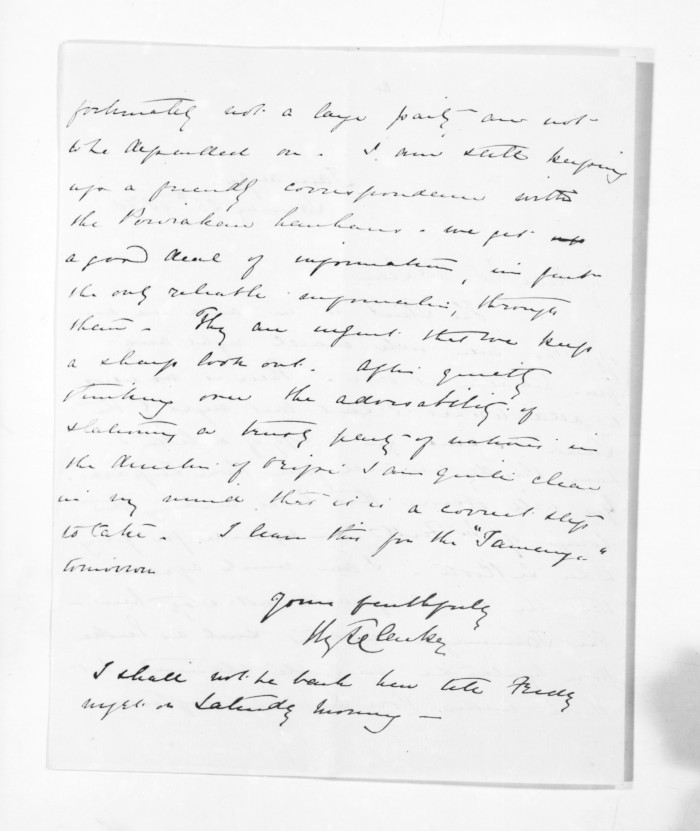 fortunately not a large party and not
to be depended on. I am still keeping
up a friendly correspondence with
the Pourakau hauhaus. we get
a good deal of information, in fact
the only reliable information, through
them. They are urgent that we keep
a sharp look out. After quietly
thinking over the advisability of
stationing a trusty party of natives in
the direction of I am quite clear
in my mind that it is a correct step
to take. I leave this for the "
tomorrow
Yours faithfully
Hy T Clarke
I shall not be back here till Friday
night or Saturday morning —